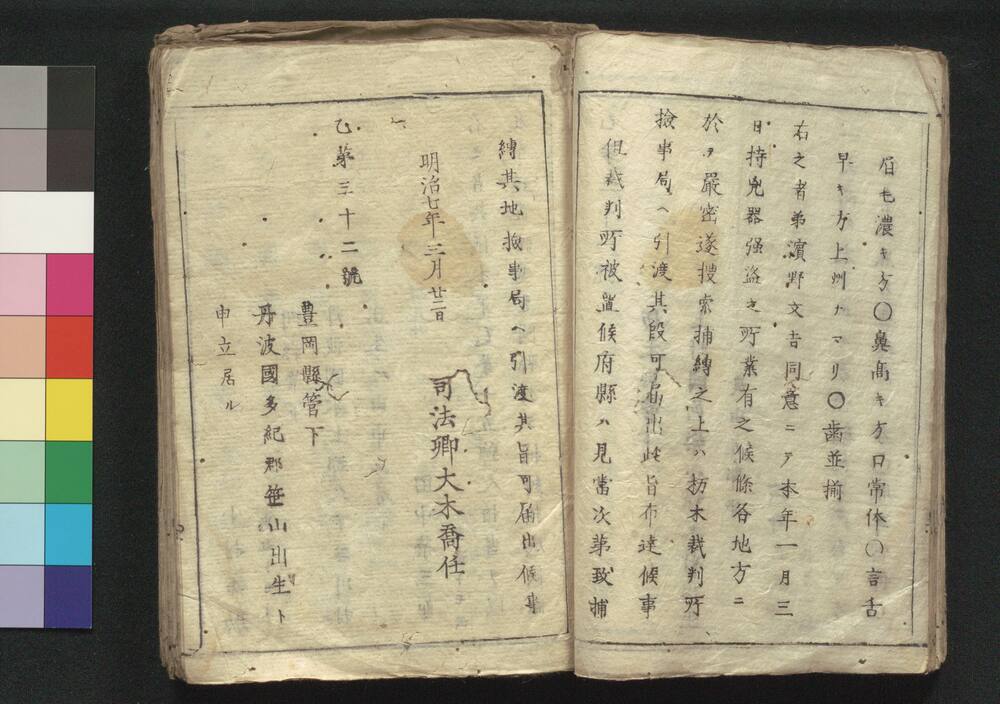 眉モ濃キ方〇鼻高キ方口常体〇言舌
早キ方上州ナマリ〇歯並揃
右之者弟濱野文吉同意ニテ本年一月三
日持兇器强盗之所業有之候條各地方ニ
於テ嚴密遂搜索捕縛之上ハ栃木裁判所
撿事局ヘ引渡其段可届出此旨布達候事
但裁判所被置候府縣ハ見當次第致捕
縛其地撿事局ヘ引渡其旨可届出候事
明治七年三月廿二日
司法卿大木喬任
乙第三十二號
豊岡縣管下
丹波國多紀郡笹山出生ト
申立居ル